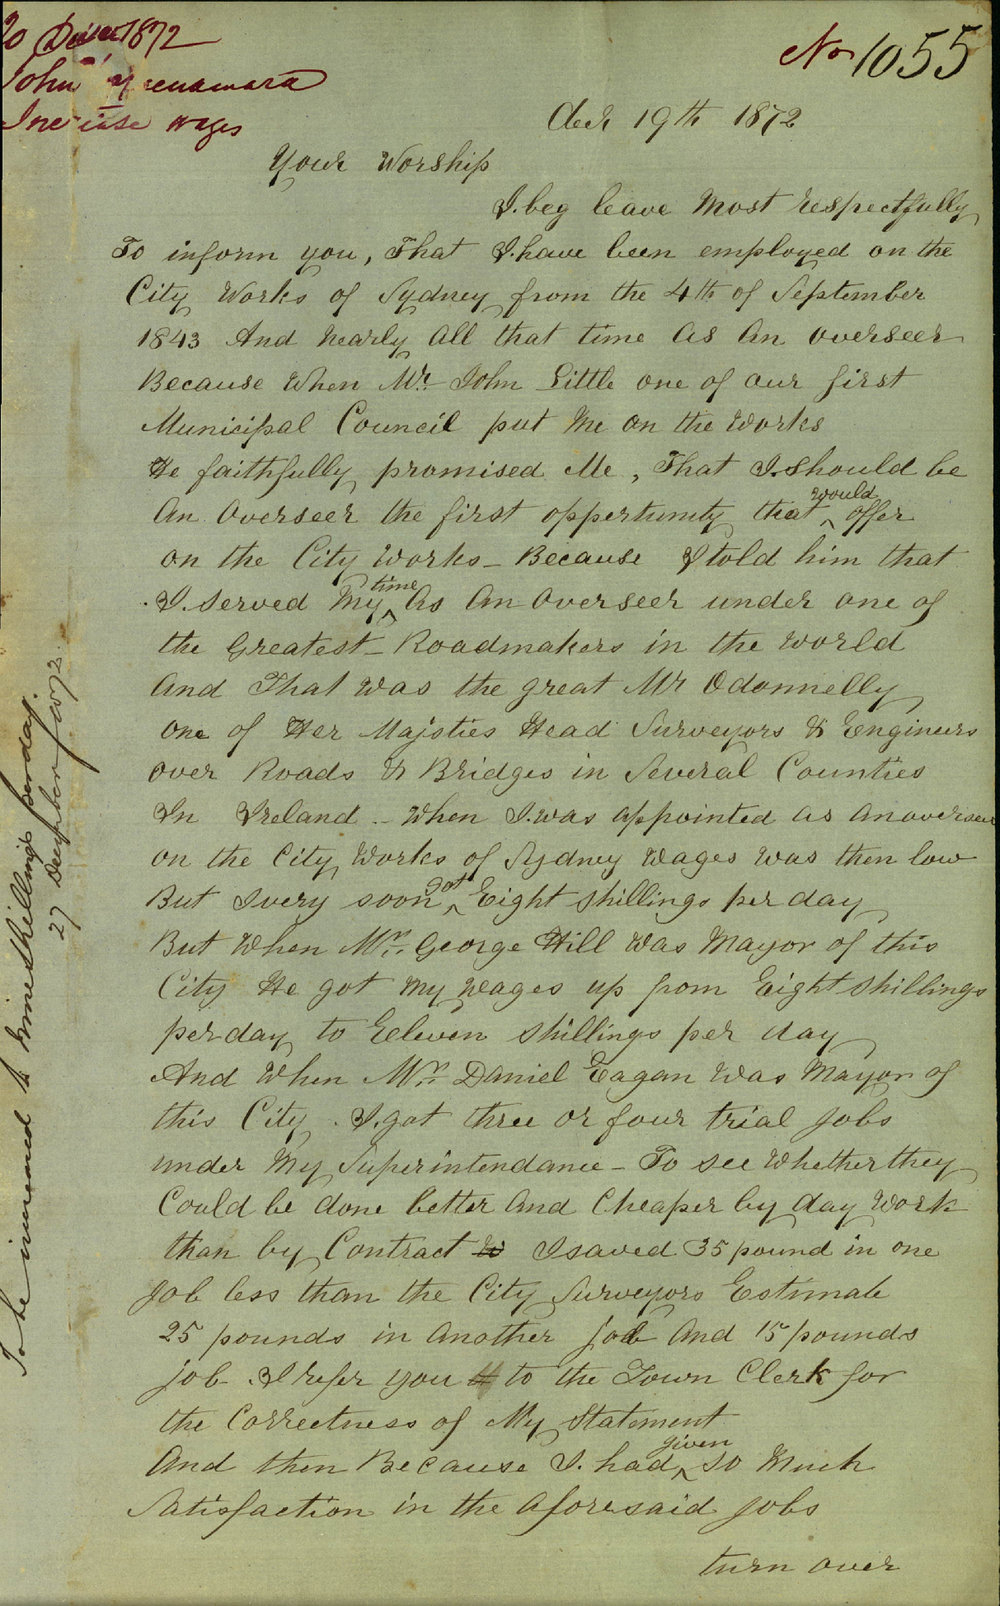 20 Decr 1872
John McNamara
Increase wages
No 1055
Decr 19th 1872
Your Worship
I beg leave Most respectfully
To inform you, That I have been employed on the
City Works of Sydney from the 4th of September
1843 And nearly all that time as an overseer
Because When Mr. John Little one of our first
Municipal Council put Me on the Works
He faithfully promised Me, That I should be
An Overseer the first oppertunity that would offer
on the City Works - Because I told him that
I served My time As An Overseer under one of
the Greatest Roadmakers in the world
And That was the great Mr Odonnelly
one of Her Majsties Head Surveyors & Eengineers
over Roads & Bridges in Several Counties
In Ireland - When I was appointed as an overseer
on the City Works of Sydney Wages was then low
But I very soon got Eight shillings per day
But When Mr. George Hill was Mayor of this
City He got My wages up from Eight shillings
per day to Eeleven shillings per day
And When Mr. Daniel Eagan Was Mayor of
this City. I got three or four trial Jobs
under My Superintendance - To see Whether they
Could be done better and Cheaper by day Work
than by Contract I saved 35 pound in one
Job less than the City Surveyors Estimate
25 pounds in another job And 15 pounds
job. I refer you to the Town Clerk for
the Correctness of My Statement
And then Because I had given so Much
Satisfaction in the aforesaid Jobs
turn over
To be increased to nine shillings per day.
27 December 1872.